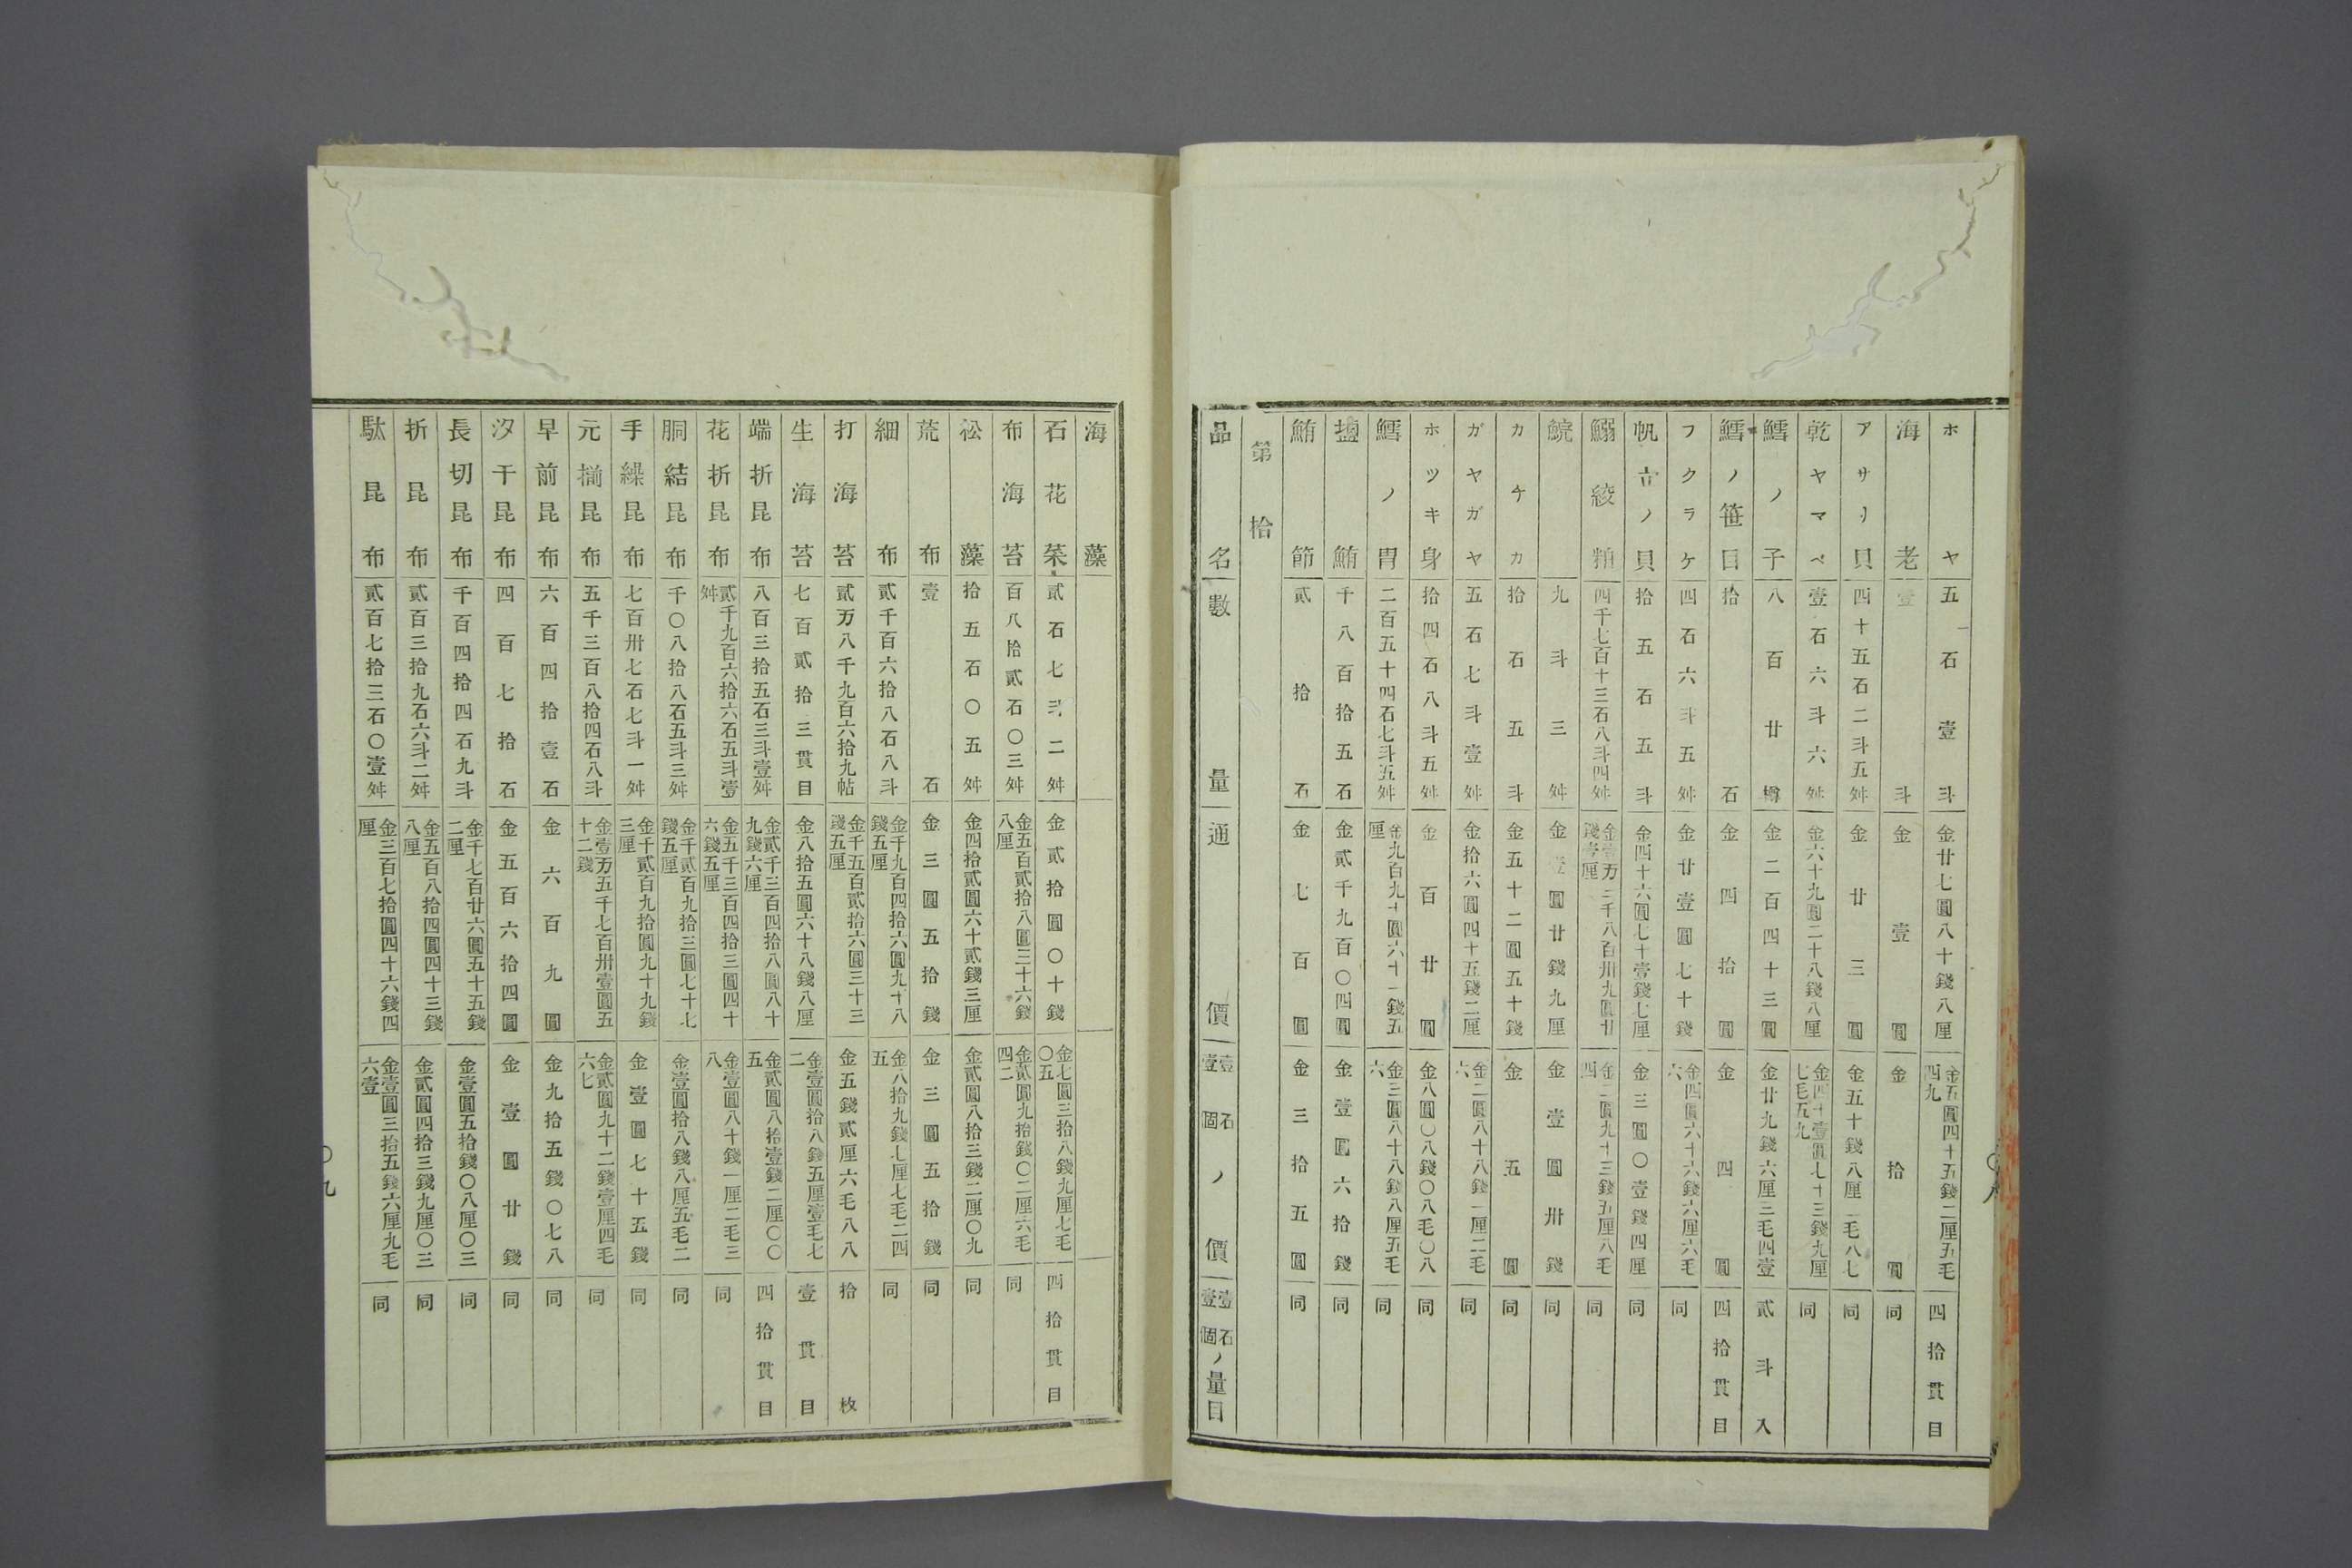 ホヤ 五石壹斗 金廿七圓八十錢八厘 金五圓四十五錢二厘五毛四九 四拾貫目
海老 壹斗 金壹圓 金拾圓 同
アサリ貝 四十五石二斗五舛 金廿三圓 金五十錢八厘二毛八七 同
乾ヤマベ 壹石六斗六舛 金六十九圓二十八錢八厘 金四十壹圓七十三錢九厘七毛五九 同
鱈ノ子 八百廿樽 金二百四十三圓 金廿九錢六厘三毛四壹 貳斗入
鱈ノ笹目 拾石 金四拾圓 金四圓 四拾貫目
フクラケ 四石六斗五舛 金廿壹圓七十錢 金四圓六十六錢六厘六毛六 同
帆立ノ貝 拾五石五斗 金四十六圓七十壹錢七厘 金三圓〇壹錢四厘 同
鰯絞粕 四千七百十三石八斗四舛 金壹万三千八百卅九圓廿錢壹厘 金二圓九十三錢五厘八毛四 同
鯇 九斗三舛 金壹圓廿錢九厘 金壹圓卅錢 同
カケカ 拾石五斗 金五十二圓五十錢 金五圓 同
ガヤガヤ 五石七斗壹舛 金拾六圓四十五錢二厘 金二圓八十八錢一厘二毛六 同
ホツキ身 拾四石八斗五舛 金百廿圓 金八圓〇八錢〇八毛〇八 同
鱈ノ胃 二百五十四石七斗五舛 金九百九十圓六十一錢五厘 金三圓八十八錢八厘五毛六 同
塩鮪 千八百拾五石 金貳千九百〇四圓 金壹圓六拾錢 同
鮪節 貳拾石 金七百圓 金三拾五圓 同
第拾
品名 數量 通價 壹石壹個ノ價 壹石壹個ノ量目
〇八
海藻
石花菜 貳石七斗二舛 金貳拾圓〇十錢 金七圓三拾八錢九厘七毛〇五 四拾貫目
布海苔 百八拾貳石〇三舛 金五百貳拾八圓三十六錢八厘 金貳圓九拾錢〇二厘六毛四二 同
松藻 拾五石〇五舛 金四拾貳圓六十貳錢三厘 金貳圓八拾三錢二厘〇九 同
荒布 壹石 金三圓五拾錢 金三圓五拾錢 同
細布 貳千百六拾八石八斗 金千九百四拾六圓九十八錢五厘 金八拾九錢七厘七毛二四五 同
打海苔 貳万八千九百六拾九帖 金千五百貳拾六圓三十三錢五厘 金五錢貳厘六毛八八 拾枚
生海苔 七百貳拾三貫目 金八拾五圓六十八錢八厘 金壹圓拾八錢五厘壹毛七二 壹貫目
端折昆布 八百三拾五石三斗壹舛 金貳千三百四拾八圓八十九錢六厘 金貳圓八拾壹錢二厘〇〇五 四拾貫目
花折昆布 貳千九百六拾六石五斗壹舛 金五千三百四拾三圓四十六錢五厘 金壹圓八十錢一厘二毛三八 同
胴結昆布 千〇八拾八石五斗三舛 金千貳百九拾三圓七十七錢五厘 金壹圓拾八錢八厘五毛二 同
手繰昆布 七百卅七石七斗一舛 金千貳百九拾圓九十九錢三厘 金壹圓七十五錢 同
元揃昆布 五千三百八拾四石八斗 金壹万五千七百卅壹圓五十二錢 金貳圓九十二錢壹厘四毛六七 同
早前昆布 六百四拾壹石 金六百九圓 金九拾五錢〇七八 同
汐干昆布 四百七拾石 金五百六拾四圓 金壹圓廿錢 同
長切昆布 千百四拾四石九斗 金千七百廿六圓五十五錢二厘 金壹圓五拾錢〇八厘〇三 同
折昆布 貳百三拾九石六斗二舛 金五百八拾四圓四十三錢八厘 金貳圓四拾三錢九厘〇三 同
駄昆布 貳百七拾三石〇壹舛 金三百七拾圓四十六錢四厘 金壹圓三拾五錢六厘九毛六壹 同
〇九